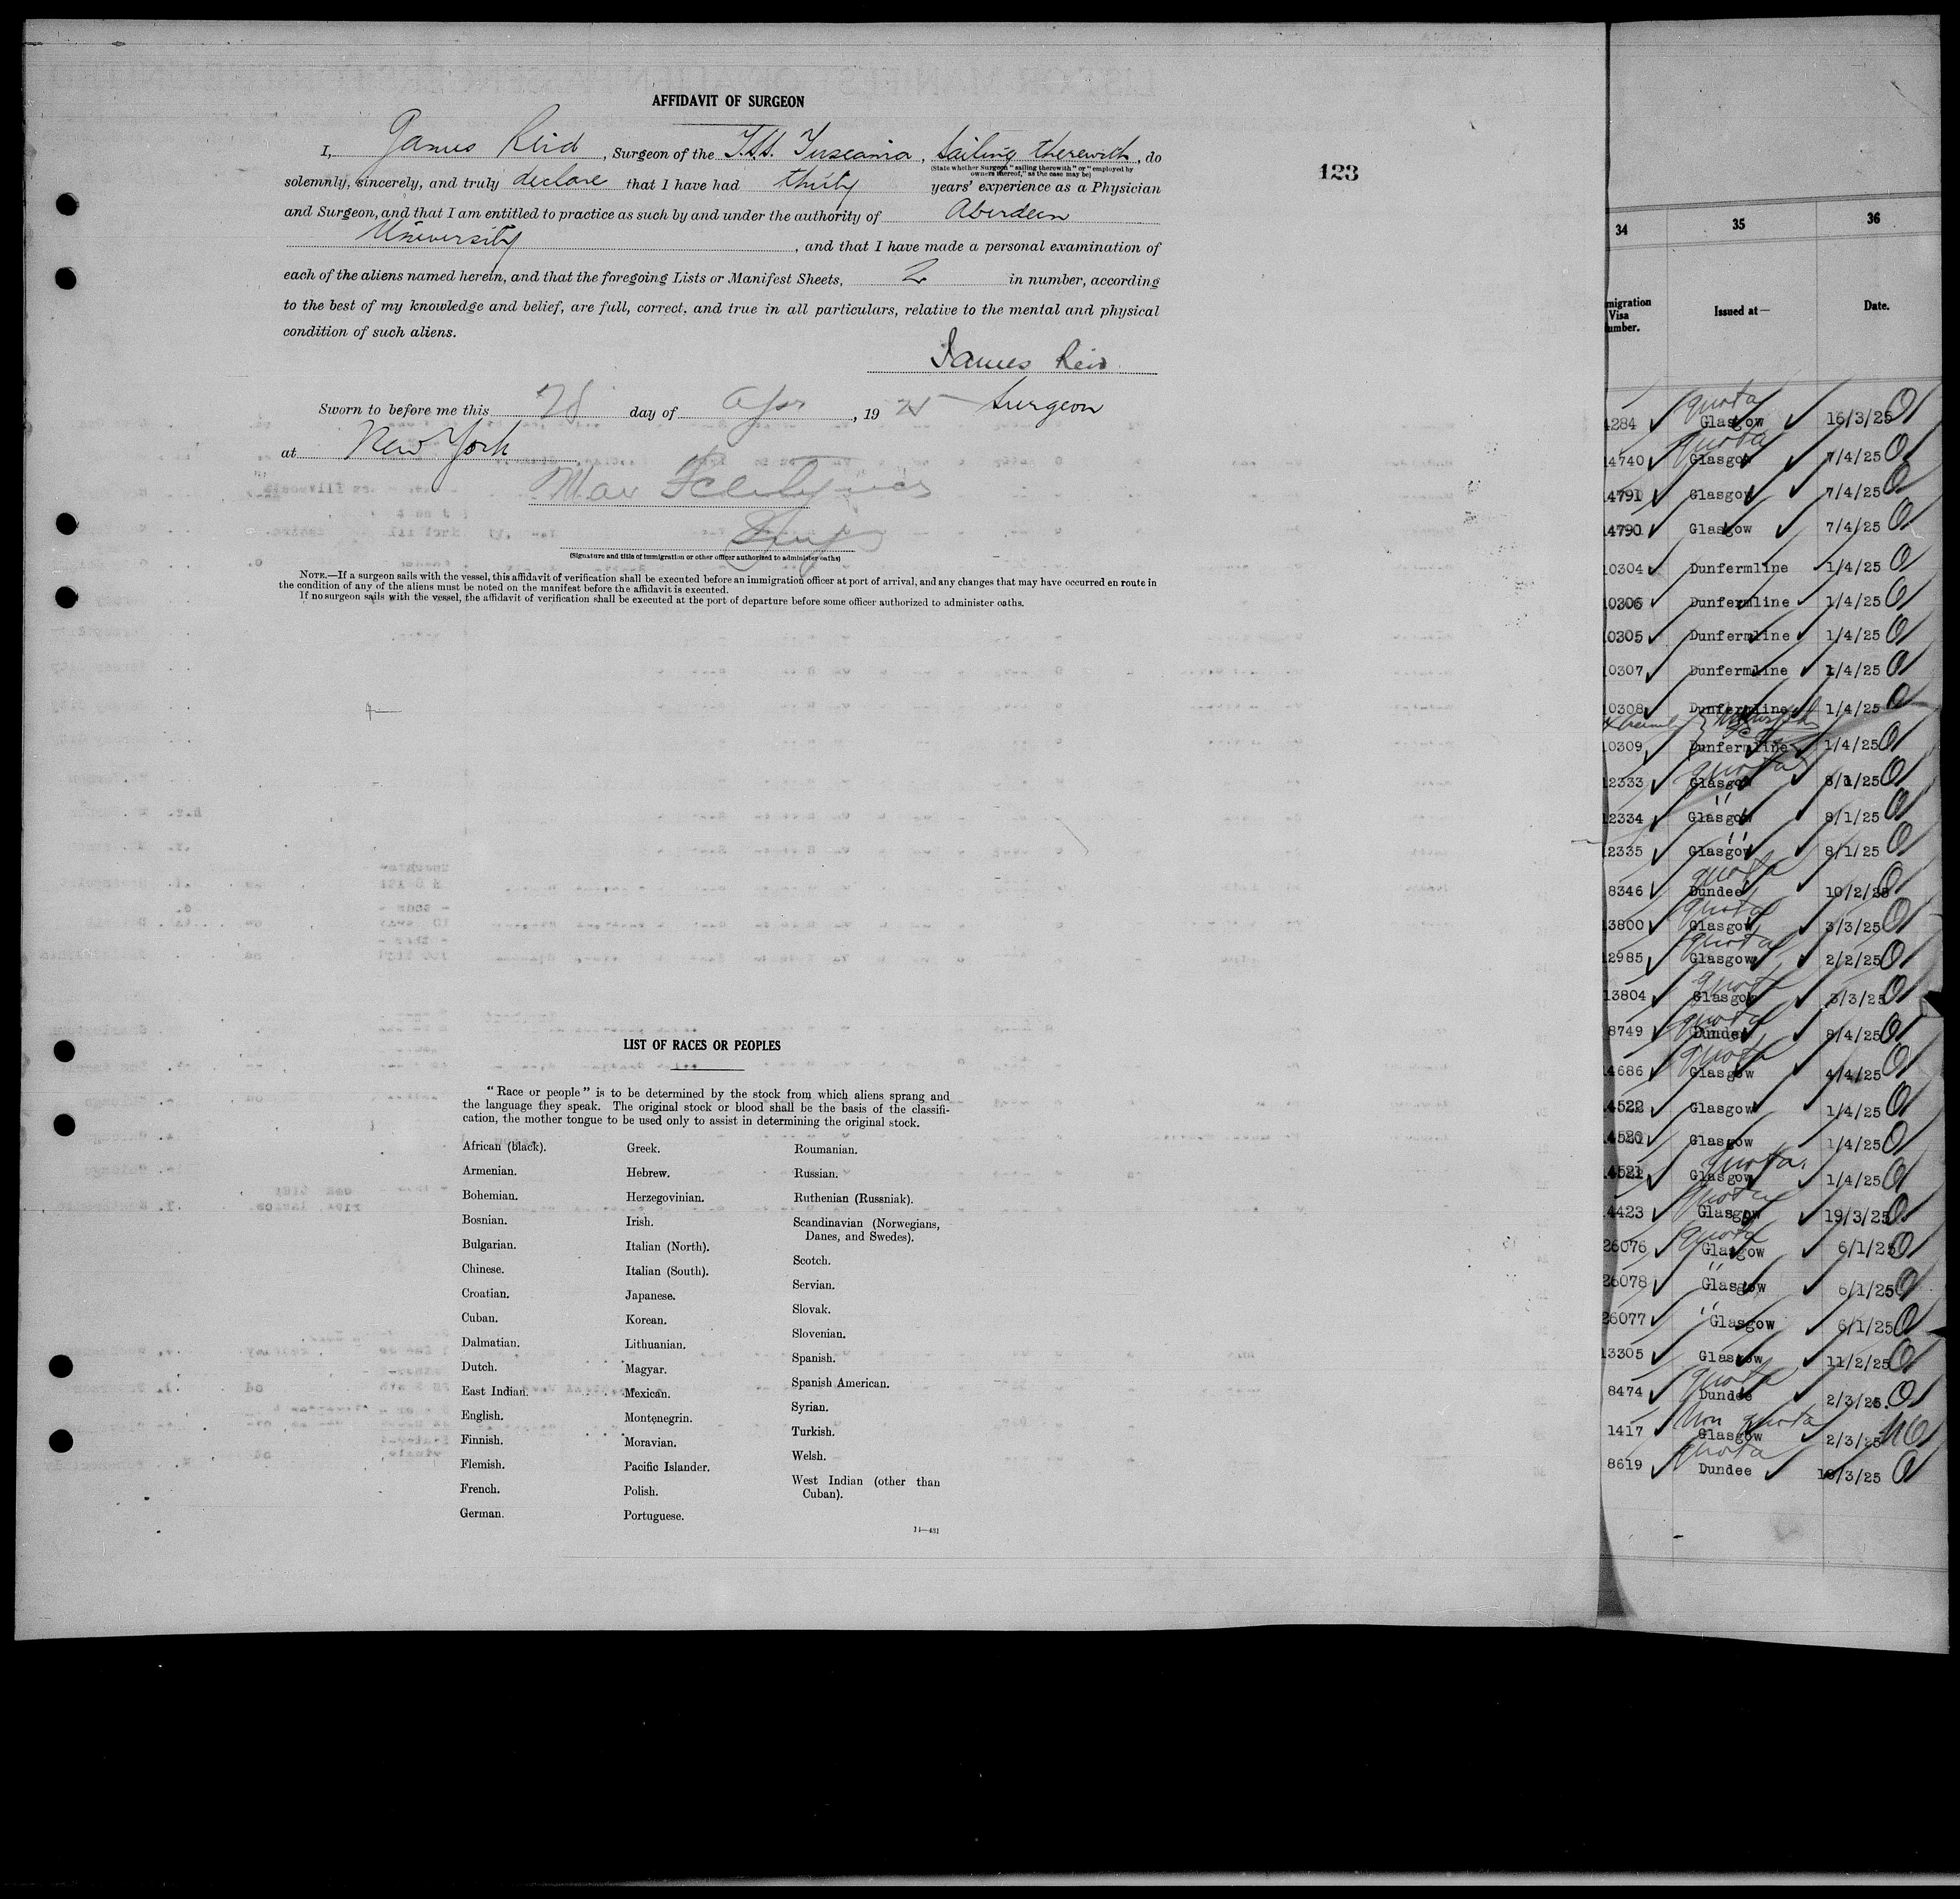 AFFIDAVIT OF SURGEON
I, James Reid, Surgeon of the T.S.S. Tuscania, Sailing therewith, do
(State whether Surgeon "sailing therewith" or "employed by
owners thereof," as the case may be)
123
solemnly, sincerely, and truly declare that I have had thirty years' experience as a Physician
and Surgeon, and that I am entitled to practice as such by and under the authority of Aberdeen
University, and that I have made a personal examination of
each of the aliens named herein, and that the foregoing Lists or Manifest Sheets, 2 in number, according
to the best of my knowledge and belief, are full, correct, and true in all particulars, relative to the mental and physical
condition of such aliens.
James Reid
Surgeon
Sworn to before me this 28 day of Apr, 19 25
at New York
Max
Insp
(Signature and title of immigration or other officer authorized to administer oaths)
NOTE.—If a surgeon sails with the vessel, this affidavit of verification shall be executed before an immigration officer at port of arrival, and any changes that may have occurred en route in
the condition of any of the aliens must be noted on the manifest before the affidavit is executed.
If no surgeon sails with the vessel, the affidavit of verification shall be executed at the port of departure before some officer authorized to administer oaths.
LIST OF RACES OR PEOPLES
"Race or people" is to be determined by the stock from which aliens sprang and
the language they speak. The original stock or blood shall be the basis of the classifi-
cation, the mother tongue to be used only to assist in determining the original stock.
African (black).
Armenian.
Bohemian.
Bosnian.
Bulgarian.
Chinese.
Croatian.
Cuban.
Dalmatian.
Dutch.
East Indian.
English.
Finnish.
Flemish.
French.
German.
Greek.
Hebrew.
Herzegovinian.
Irish.
Italian (North).
Italian (South).
Japanese.
Korean.
Lithuanian.
Magyar.
Mexican.
Montenegrin.
Moravian.
Pacific Islander.
Polish.
Portuguese.
Roumanian.
Russian.
Ruthenian (Russniak).
Scandinavian (Norwegians,
Danes, and Swedes).
Scotch.
Servian.
Slovak.
Slovenian.
Spanish.
Spanish American.
Syrian.
Turkish.
Welsh.
West Indian (other than
Cuban).
14—431
34 35 36
migration
Visa
umber.
Issued at—
Date.
quota
4284 Glasgow 16/3/25
quota
14740 Glasgow 7/4/25
14791 Glasgow 7/4/25
14790 Glasgow 7/4/25
10304 Dunfermline 1/4/25
10306 Dunfermline 1/4/25
10305 Dunfermline 1/4/25
10307 Dunfermline 1/4/25
10308 Dunfermline 1/4/25
10309 Dunfermline 1/4/25
quota
12333 Glasgow 8/1/25
"
12334 Glasgow 8/1/25
"
12335 Glasgow 8/1/25
quota
8346 Dundee 10/2/25
quota
13800 Glasgow 3/3/25
quota
12985 Glasgow 2/2/25
quota
13804 Glasgow 3/3/25
quota
8749 Dundee 8/4/25
quota
14686 Glasgow 4/4/25
14522 Glasgow 1/4/25
14520 Glasgow 1/4/25
quota
14521 Glasgow 1/4/25
quota
14423 Glasgow 19/3/25
quota
26076 Glasgow 6/1/25
"
26078 Glasgow 6/1/25
"
26077 Glasgow 6/1/25
13305 Glasgow 11/2/25
quota
8474 Dundee 2/3/25.
Non quota
1417 Glasgow 2/3/25 NQ
quota
8619 Dundee 18/3/25